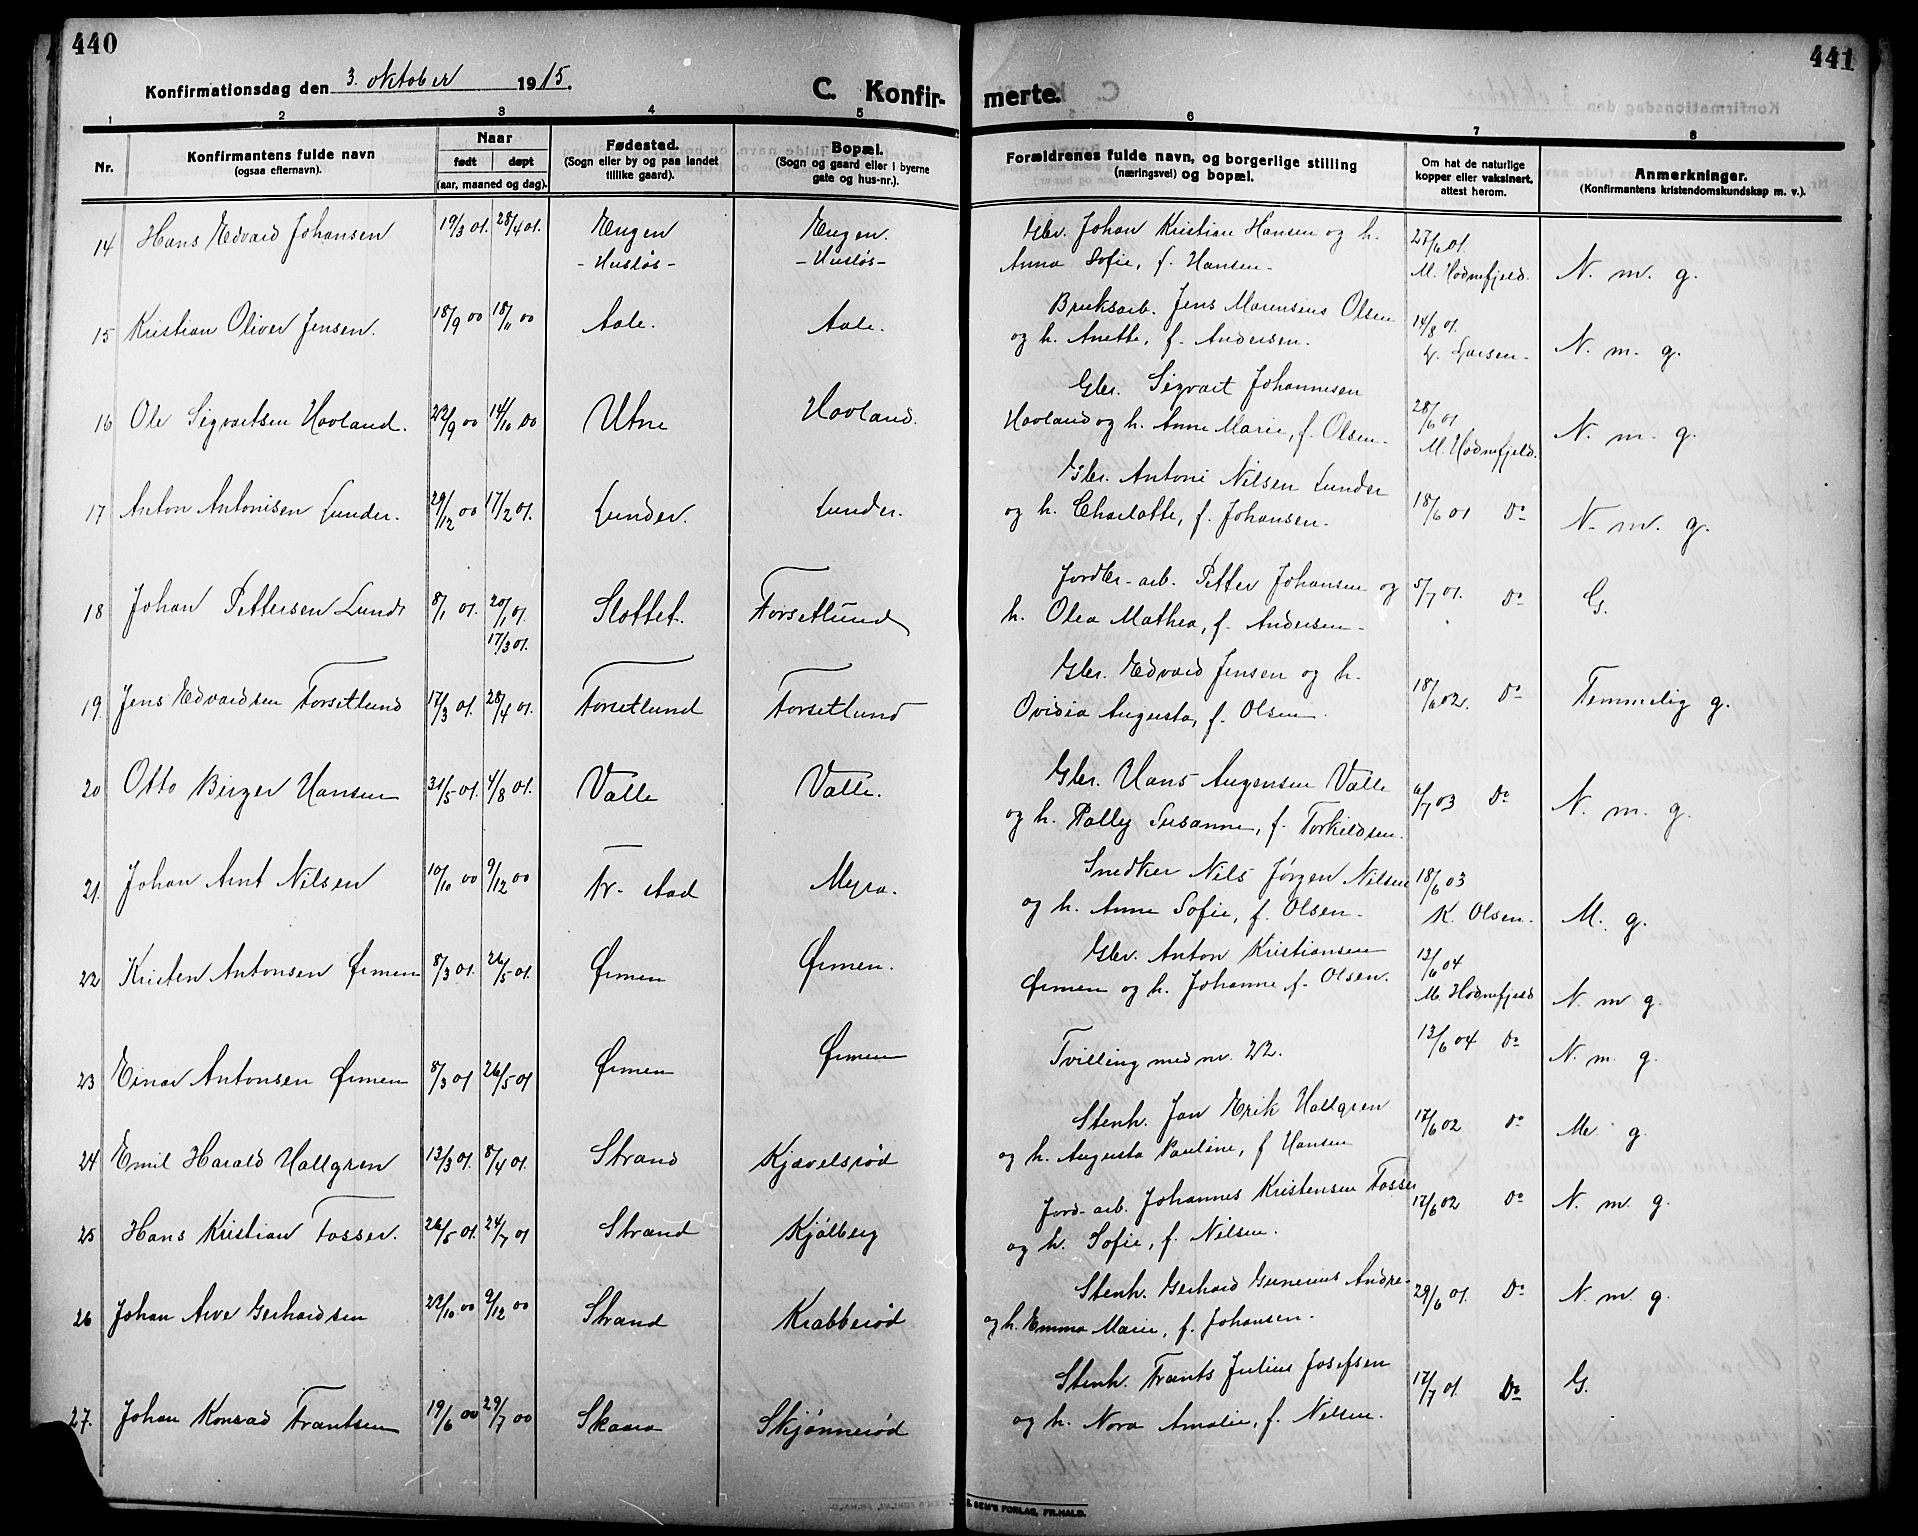 440
441
Konfirmationsdag den 3. oktober 1915.
C. Konfirmerte.
1 2 3 4 5 6 7 8
Nr.
Konfirmantens fulde navn
(ogsaa efternavn).
Naar
født døpt
(aar, maaned og dag).
Fødested.
(Sogn eller by og paa landet
tillike gaard).
Bopæl.
(Sogn og gaard eller i byerne
gate og hus-nr.).
Forældrenes fulde navn, og borgerlige stilling
(næringsvei) og bopæl.
Om hat de naturlige
kopper eller vaksinert,
attest herom.
Anmerkninger.
(Konfirmantens kristendomskundskap m. v.).
14 Hans Edvard Johansen 19/3 01. 28/4 01. Engen Engen. Gbr. Johan Kristian Hansen og h. 27/6 01.
-Husløs- -Husløs- Anna Sofie, f. Hansen. M. Hodnefjeld. N. m. g.
15 Kristian Oliver Jensen. 18/9 00 18/11 00 Aale. Aale. Bruksarb. Jens Marensius Olsen 14/8 01.
og h. Anette, f. Andersen. L. Larsen. N. m. g.
16 Ole Sigvartsen Hovland. 22/9 00 14/10 00 Utne Hovland. Gbr. Sigvart Johannesen 28/6 01
Hovland og h. Anne Marie, f. Olsen. M. Hodnefjeld. N. m. g.
17 Anton Antonisen Lunder. 29/12 00 17/2 01. Lunder. Lunder. Gbr. Antoni Nilsen Lunder
og h. Charlotte, f. Johansen. 18/6 01 Do N. m. g.
18 Johan Pettersen Lunde 8/1 01. 20/1 01. Slottet. Forsetlund Jordbr.-arb. Petter Johansen og 5/7 01. Do G.
17/3 01. h. Olea Mathea, f. Andersen.
19. Jens Edvardsen Forsetlund 17/3 01. 28/4 01. Forsetlund Forsetlund Gbr. Edvard Jensen og h.
Ovidia Augusta, f. Olsen. 18/6 02. Do Temmelig g.
20 Otto Birger Hansen 31/5 01. 4/8 01. Valle Valle. Gbr. Hans Augensen Valle
og h. Pally Susanne, f. Torkildsen. 6/7 03 Do N. m. g.
21. Johan Arnt Nilsen 10/10 00 9/12 00 Fr.stad Myra. Snedker Nils Jørgen Nilsen 18/6 03
og h. Anne Sofie, f. Olsen. K. Olsen. M. g.
22 Kristen Antonsen Ørmen 8/3 01. 26/5 01. Ørmen Ørmen. Gbr. Anton Kristiansen 13/6 04
Ørmen og h. Johanne f. Olsen. M. Hodnefjeld N. m g.
23 Einar Antonsen Ørmen 8/3 01 26/5 01 Ørmen Ørmen Tvilling med nr. 22. 13/6 04 Do N. m. g.
24 Emil Harald Hallgren 13/3 01. 8/4 01. Strand Kjævelsrød Stenh. Jan Erik Hallgren
og h. Augusta Pauline, f Hansen 17/6 02 Do M. g.
25 Hans Kristian Fosser. 26/5 01. 24/7 01 Strand Kjølberg Jord-arb. Johannes Kristensen Fosser
og h. Sofie, f. Nilsen. 17/6 02 Do N. m. g.
26 Johan Arve Gerhardsen 22/10 00 9/12 00 Strand Krabberød Stenh. Gerhard Gunerius Andre-
og h. Emma Marie, f. Johansen. 29/6 01. Do N. m. g.
27. Johan Konrad Frantsen 19/6 00 29/7 00 Skaara Skjønnerød Stenh. Frants Julius Josefsen
og h. Nora Amalie, f. Nilsen. 17/7 01. Do G.
SEM'S FORLAG, FR.HALD.